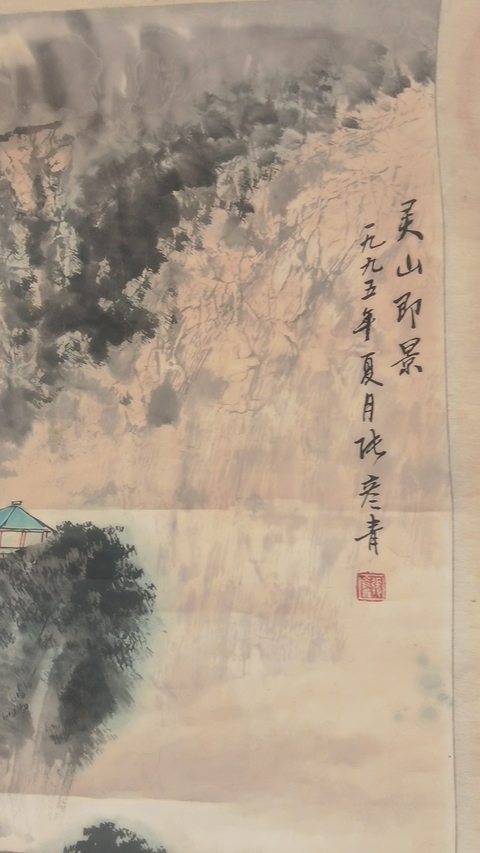 灵山即景
一九九五年夏月张彦青